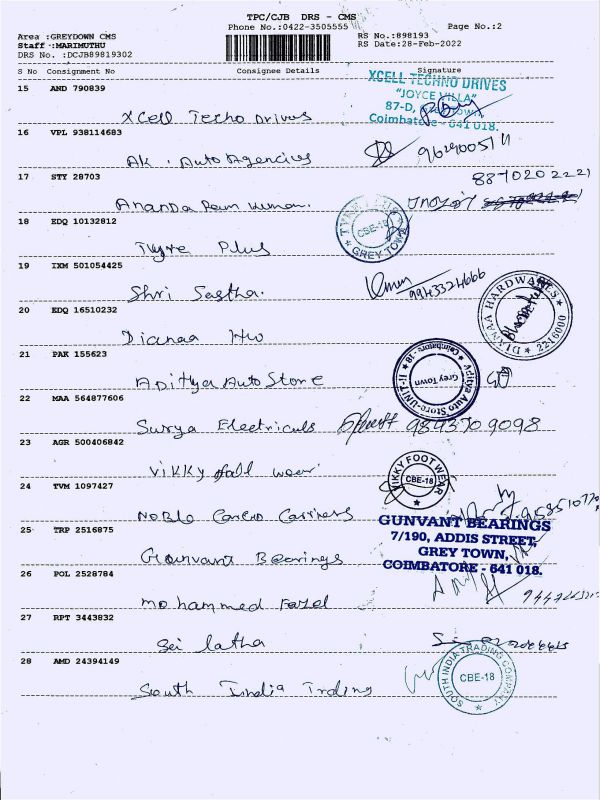 TPC/CJB DRS - CMS
Phone No.:0422-3505555
Page No.:2
Area :GREYDOWN CMS
Staff :MARIMUTHU
DRS No. :DCJB89819302
RS No.:898193
RS Date:28-Feb-2022
S No Consignment No Consignee Details Signature
15 AND 790839
Xcell Techo Drives
XCELL TECHNO DRIVES
"JOYCE VILLA"
87-D,
Coimbatore - 641 018.
16 VPL 938114683
AK. Auto Agencies
17 STY 28703
8870202221
Ananda Ram Kumar.
18 EDQ 10132812
Tyre Plus
TYRE PLUS
CBE-18
GREY TOWN
19 IXM 501054425
Shri Sastha.
9943324666
20 EDQ 16510232
Dianaa Hw
DIANAA HARDWARES
2216000
21 PAK 155623
Aditya Auto Store
Aditya Auto Store-UNIT-II
Grey Town
Coimbatore - 18
22 MAA 564877606
Surya Electricals 9843709098
23 AGR 500406842
Vikky foot wear
VIKKY FOOT WEAR
CBE-18
24 TVM 1097427
Noble Cargo Carriers
25 TRP 2516875
Gunvant Bearings
GUNVANT BEARINGS
7/190, ADDIS STREET,
GREY TOWN,
COIMBATORE - 641 018.
26 POL 2528784
Mohammed Fazel
27 RPT 3443832
Sei latha
28 AMD 24394149
South India Trding
SOUTH INDIA TRADING COMPANY
CBE-18